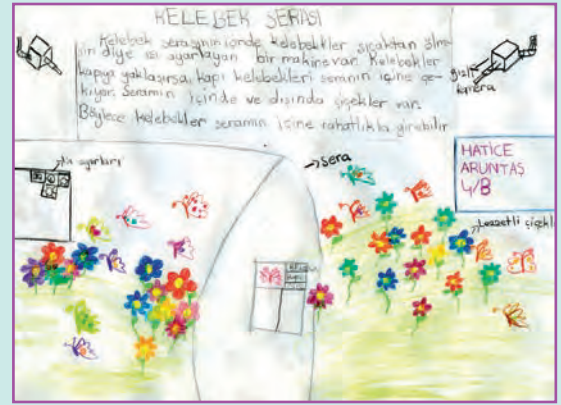 KELEBEK SERASI
Kelebek serasının içinde kelebekler sıcaktan ölme-
sin diye ısı ayarlayan bir makine var. Kelebekler
kapıya yaklaşırsa, kapı kelebekleri seramın içine çe-
kiyor. Seramın içinde ve dışında çiçekler var.
Böylece kelebekler seramın içine rahatlıkla girebilir
gizli
kamera
Isı ayarları
sera
HATİCE
ARUNTAŞ
4/B
Lezzetli çiçekl